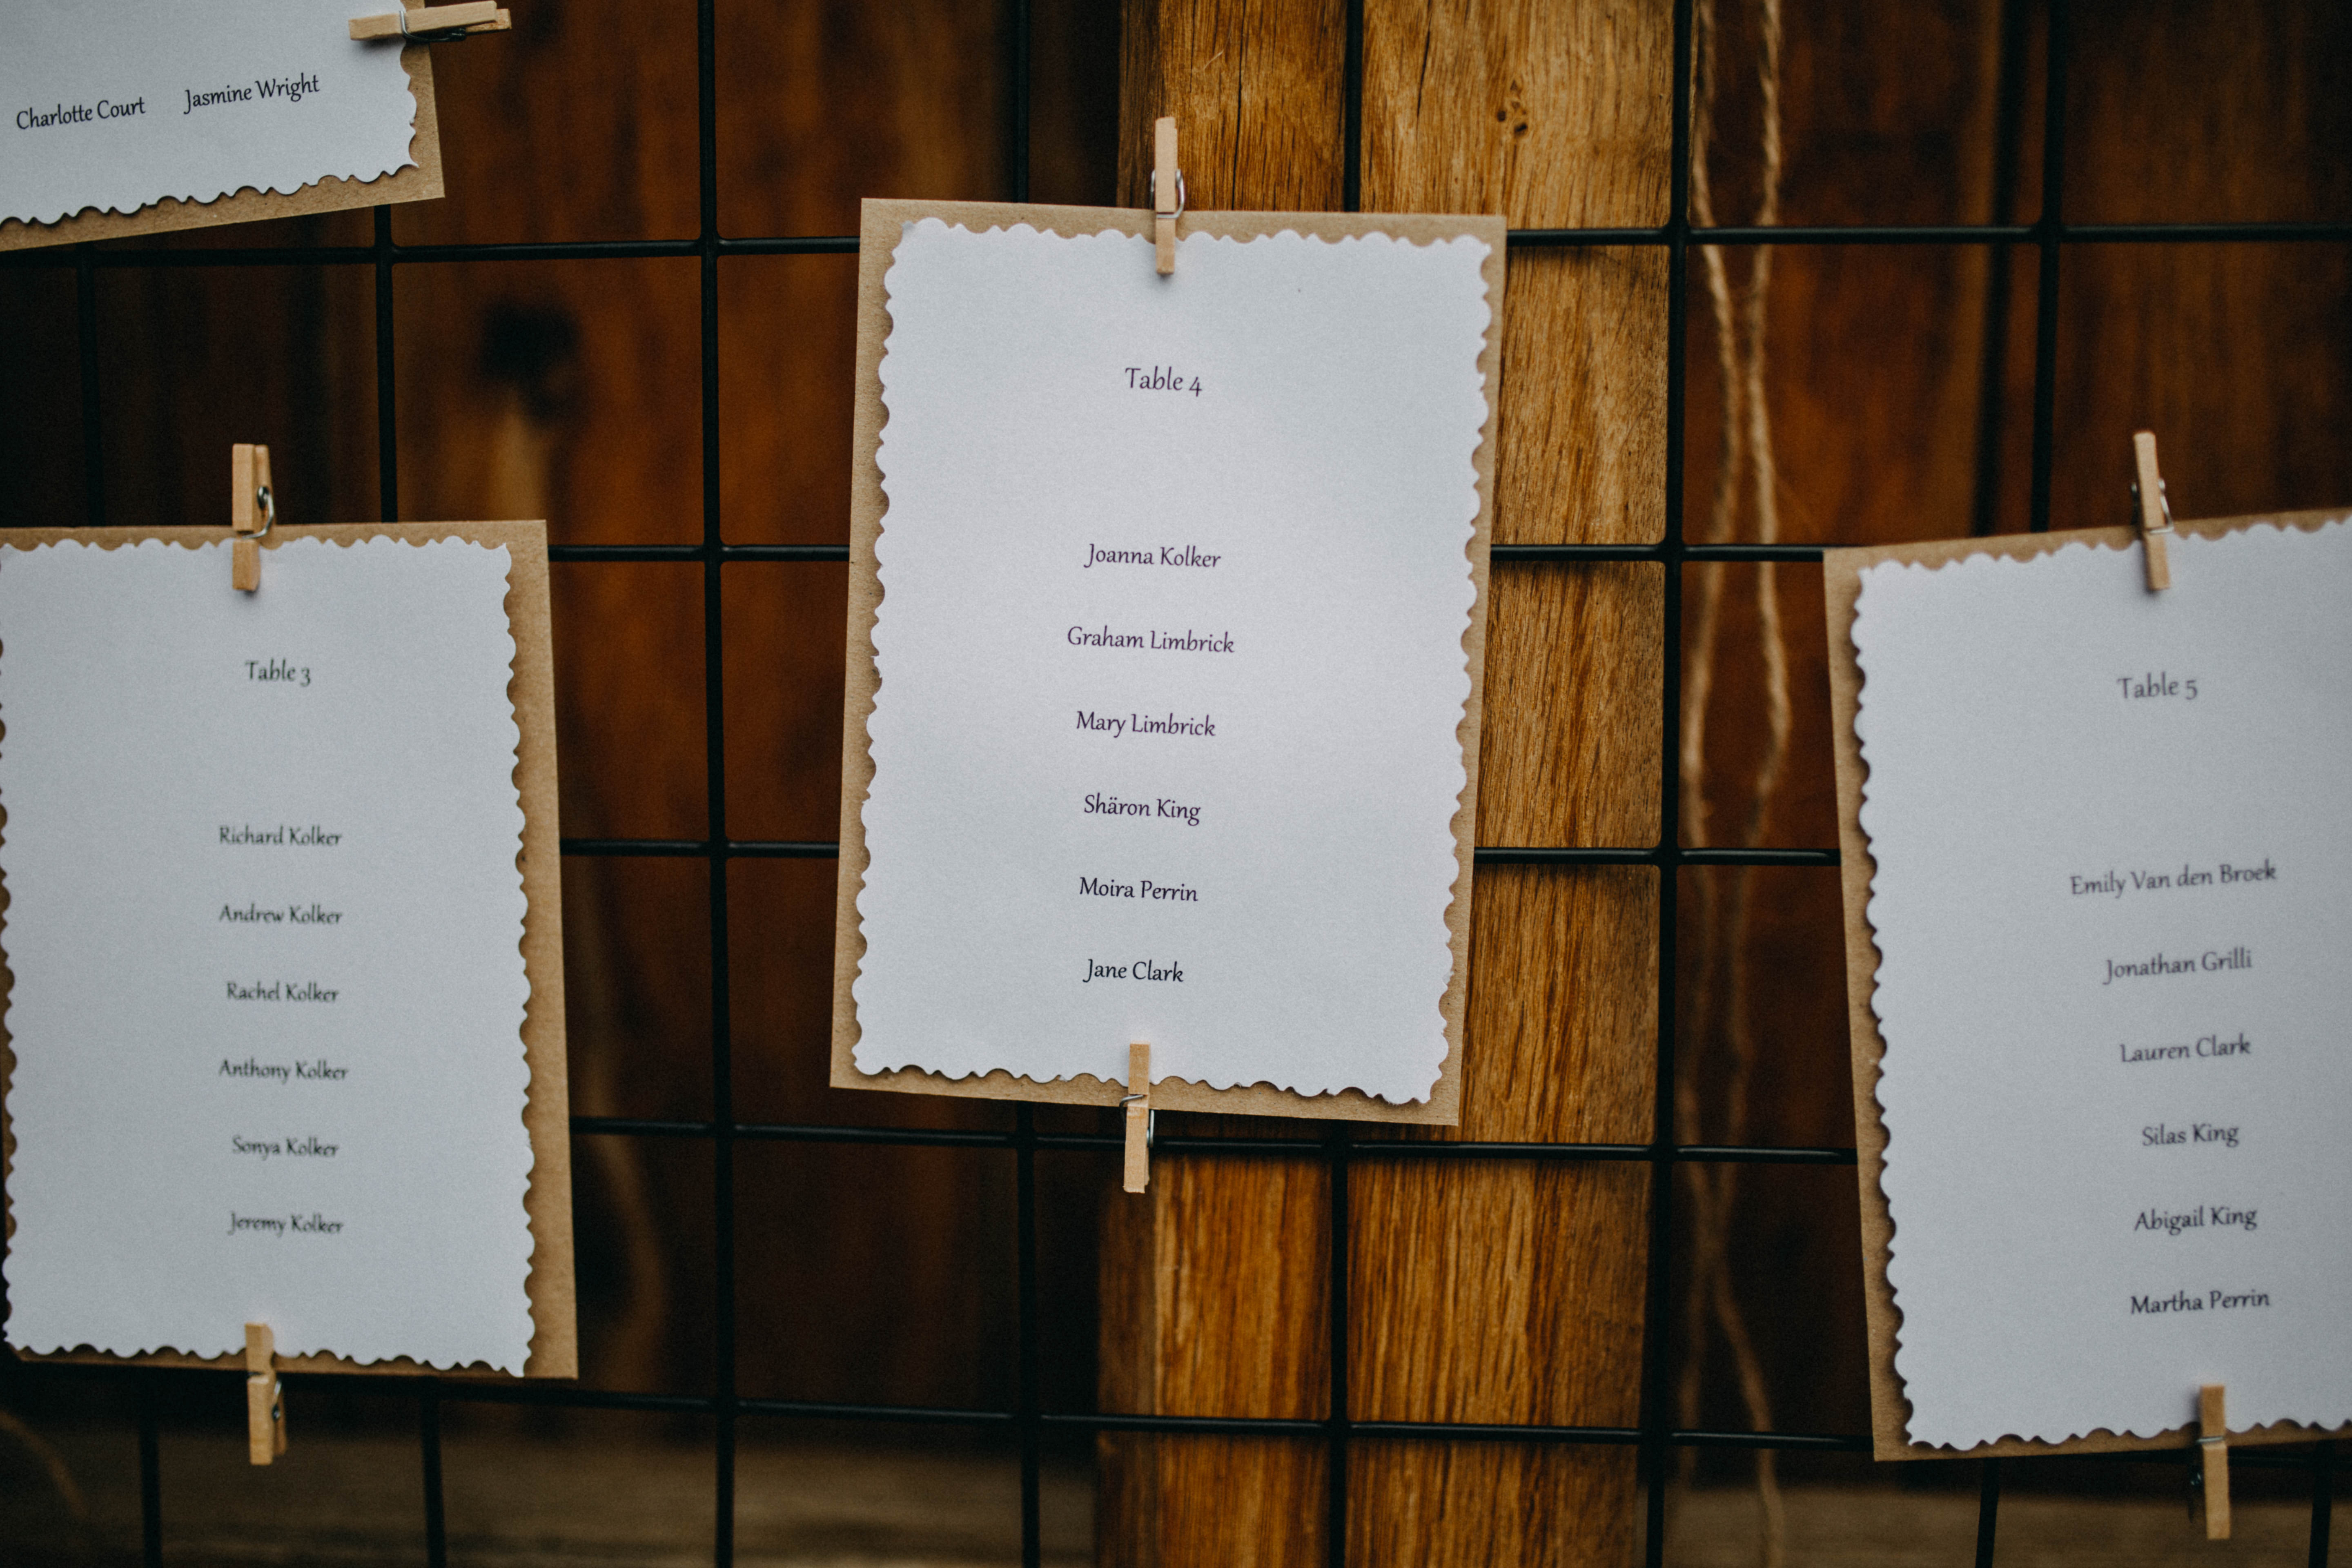 Charlotte Court Jasmine Wright
Table 3
Richard Kolker
Andrew Kolker
Rachel Kolker
Anthony Kolker
Sonya Kolker
Jeremy Kolker
Table 4
Joanna Kolker
Graham Limbrick
Mary Limbrick
Shäron King
Moira Perrin
Jane Clark
Table 5
Emily Van den Broek
Jonathan Grilli
Lauren Clark
Silas King
Abigail King
Martha Perrin